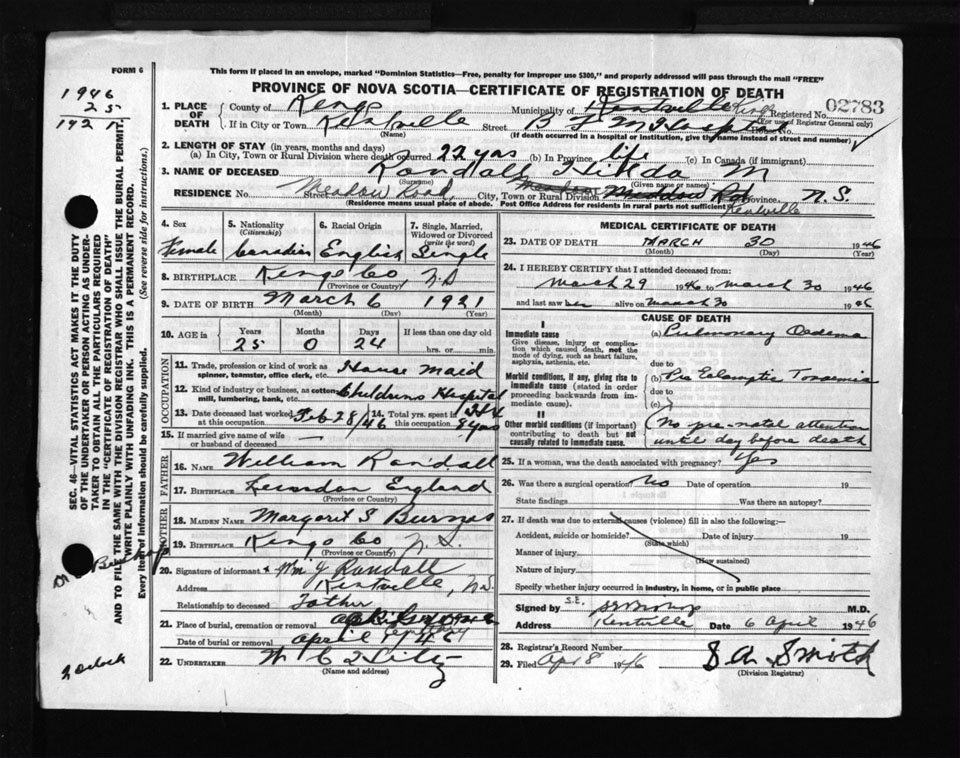 FORM 6
This form if placed in an envelope, marked "Dominion Statistics—Free, penalty for improper use $300," and properly addressed will pass through the mail "FREE"
PROVINCE OF NOVA SCOTIA—CERTIFICATE OF REGISTRATION OF DEATH
1946
25
1921
SEC. 46—VITAL STATISTICS ACT MAKES IT THE DUTY
OF THE UNDERTAKER OR PERSON ACTING AS UNDER-
TAKER TO OBTAIN ALL THE PARTICULARS REQUIRED
IN THE "CERTIFICATE OF REGISTRATION OF DEATH"
AND TO FILE THE SAME WITH THE DIVISION REGISTRAR WHO SHALL ISSUE THE BURIAL PERMIT.
WRITE PLAINLY WITH UNFADING INK. THIS IS A PERMANENT RECORD.
Every item of information should be carefully supplied. (See reverse side for instructions.)
1. PLACE OF DEATH
County of Kings Municipality of Kentville Kings Registered No. 02783
(For use of Registrar General only)
If in City or Town Kentville Street House No.
(Name) (If death occurred in a hospital or institution, give the name instead of street and number)
2. LENGTH OF STAY (in years, months and days)
(a) In City, Town or Rural Division where death occurred 22 yrs (b) In Province life (c) In Canada (if immigrant)
3. NAME OF DECEASED Randall Hilda M
(Surname) (Given name or names)
RESIDENCE No. Street Meadow Road, City, Town or Rural Division Kentville Province N.S.
(Residence means usual place of abode. Post Office Address for residents in rural parts not sufficient)
4. Sex Female
5. Nationality (Citizenship) Canadian
6. Racial Origin English
7. Single, Married, Widowed or Divorced (write the word) Single
8. BIRTHPLACE Kings Co N.S
(Province or County)
9. DATE OF BIRTH March 6 1921
(Month) (Day) (Year)
10. AGE in Years 25 Months 0 Days 24 If less than one day old hrs. or min.
OCCUPATION
11. Trade, profession or kind of work as spinner, teamster, office clerk, etc. House Maid
12. Kind of industry or business, as cotton mill, lumbering, bank, etc. Childrens Hospital
13. Date deceased last worked at this occupation Feb 28/46 14. Total yrs. spent in this occupation 8 yrs
15. If married give name of wife or husband of deceased —
FATHER
16. NAME William Randall
17. BIRTHPLACE London England
(Province or Country)
MOTHER
18. MAIDEN NAME Margaret S Burgess
19. BIRTHPLACE Kings Co N.S.
(Province or Country)
20. Signature of informant Wm J Randall
Address Kentville, N.S.
Relationship to deceased Father
21. Place of burial, cremation or removal
Date of burial or removal April
22. UNDERTAKER W C Hiltz
(Name and address)
MEDICAL CERTIFICATE OF DEATH
23. DATE OF DEATH MARCH 30 1946
(Month) (Day) (Year)
24. I HEREBY CERTIFY that I attended deceased from:
March 29 1946 to March 30 1946
and last saw her alive on March 30 1946
CAUSE OF DEATH
I
Immediate cause
Give disease, injury or complication which caused death, not the mode of dying, such as heart failure, asphyxia, asthenia, etc.
(a) Pulmonary Oedema
due to
Morbid conditions, if any, giving rise to immediate cause (stated in order proceeding backwards from immediate cause).
(b) Pre Eclamptic Toxaemia
due to
(c)
II
Other morbid conditions (if important) contributing to death but not causally related to immediate cause.
(No pre-natal attention
until day before death
25. If a woman, was the death associated with pregnancy? Yes
26. Was there a surgical operation? No Date of operation 19
State findings Was there an autopsy?
27. If death was due to external causes (violence) fill in also the following:—
Accident, suicide or homicide? Date of injury 19
(State which)
Manner of injury
(How sustained)
Nature of injury
Specify whether injury occurred in industry, in home, or in public place
Signed by S.E. Bishop M.D.
Address Kentville Date 6 April 1946
28. Registrar's Record Number
29. Filed Apr 8 1946 S A Smith
(Division Registrar)